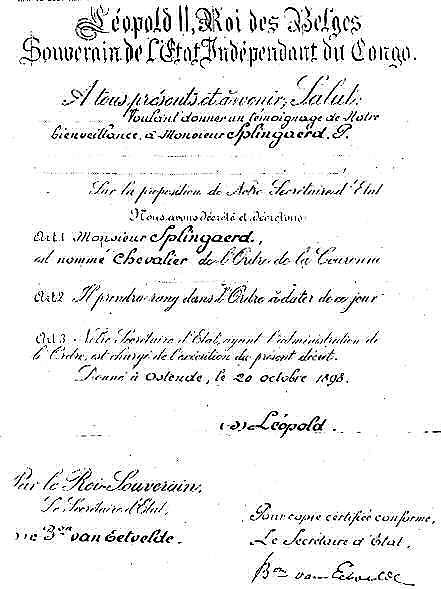 Léopold II, Roi des Belges
Souverain de l'Etat Indépendant du Congo.
A tous présents et à venir, Salut:
Voulant donner un témoignage de Notre
bienveillance, à Monsieur Splingaerd. P.
Sur la proposition de Notre Secrétaire d'Etat
Nous avons décrété et décrétons
Art 1 Monsieur Splingaerd,
est nommé Chevalier de l'Ordre de la Couronne
Art 2 Il prendra rang dans l'Ordre à dater de ce jour
Art 3 Notre Secrétaire d'Etat, ayant l'administration de
l'Ordre, est chargé de l'exécution du présent décret.
Donné à Ostende, le 20 octobre 1898.
(s) Léopold.
Par le Roi-Souverain,
Le Secrétaire d'Etat,
Bon van Eetvelde.
Pour copie certifiée conforme,
Le Secrétaire d'Etat,
Bon van Eetvelde